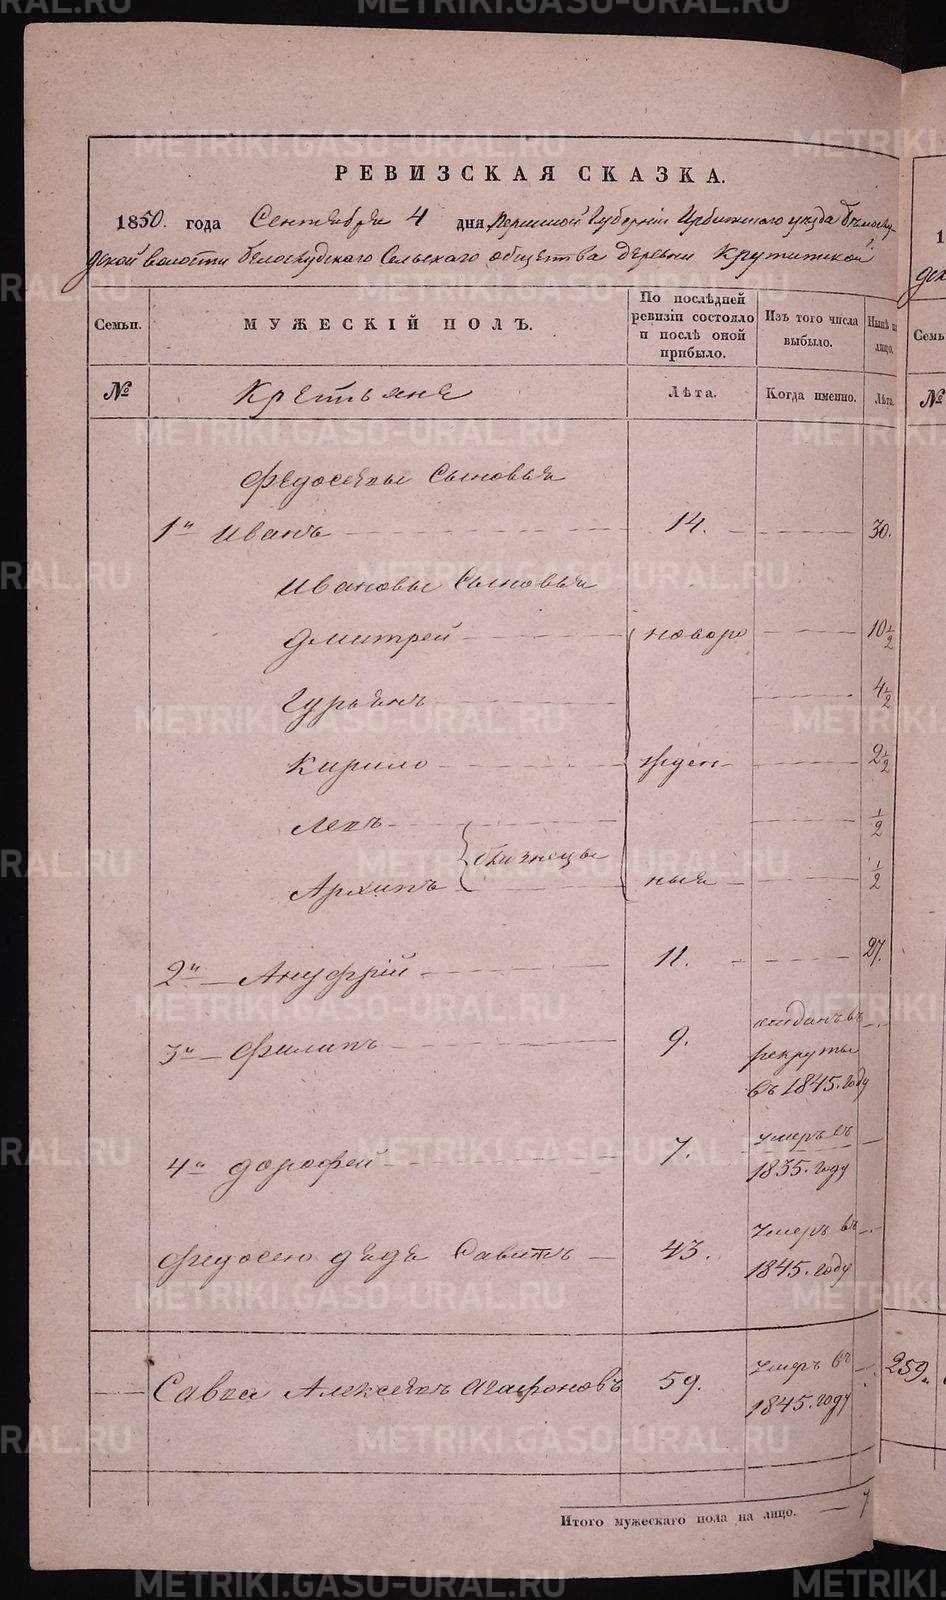 РЕВИЗСКАЯ СКАЗКА.
1850. года Сентября 4 дня Пермской Губерніи Ирбитского уезда Белослу-
дской волости Белослудского Сельскаго общества деревни Крутитской
Семьи.
МУЖЕСКІЙ ПОЛЪ.
По послѣдней ревизіи состояло и послѣ оной прибыло.
Изъ того числа выбыло.
Нынѣ на лицо.
№
Крестьяне
Лѣта.
Когда именно.
Лѣта.
Федосеевы Сыновья
1й Иванъ 14. 30.
Ивановы Сыновья
Дмитрей новоро 10 1/2
Гурьянъ 4 1/2
Кирило жден 2 1/2
Левъ 1/2
близнецы
Архипъ ныя 1/2
2й Ануфрій 11. 27.
3й Филипъ 9. отданъ въ рекруты въ 1845. году
4й Дорофей 7. Умеръ въ 1835. году
Федосею дядя Савитъ 43. Умеръ въ 1845. году
Савва Алексеевъ Агафоновъ 59. Умеръ въ 1845. году
Итого мужескаго пола на лицо. 7
1
дск
Семь
№
259.
METRIKI.GASO-URAL.RU